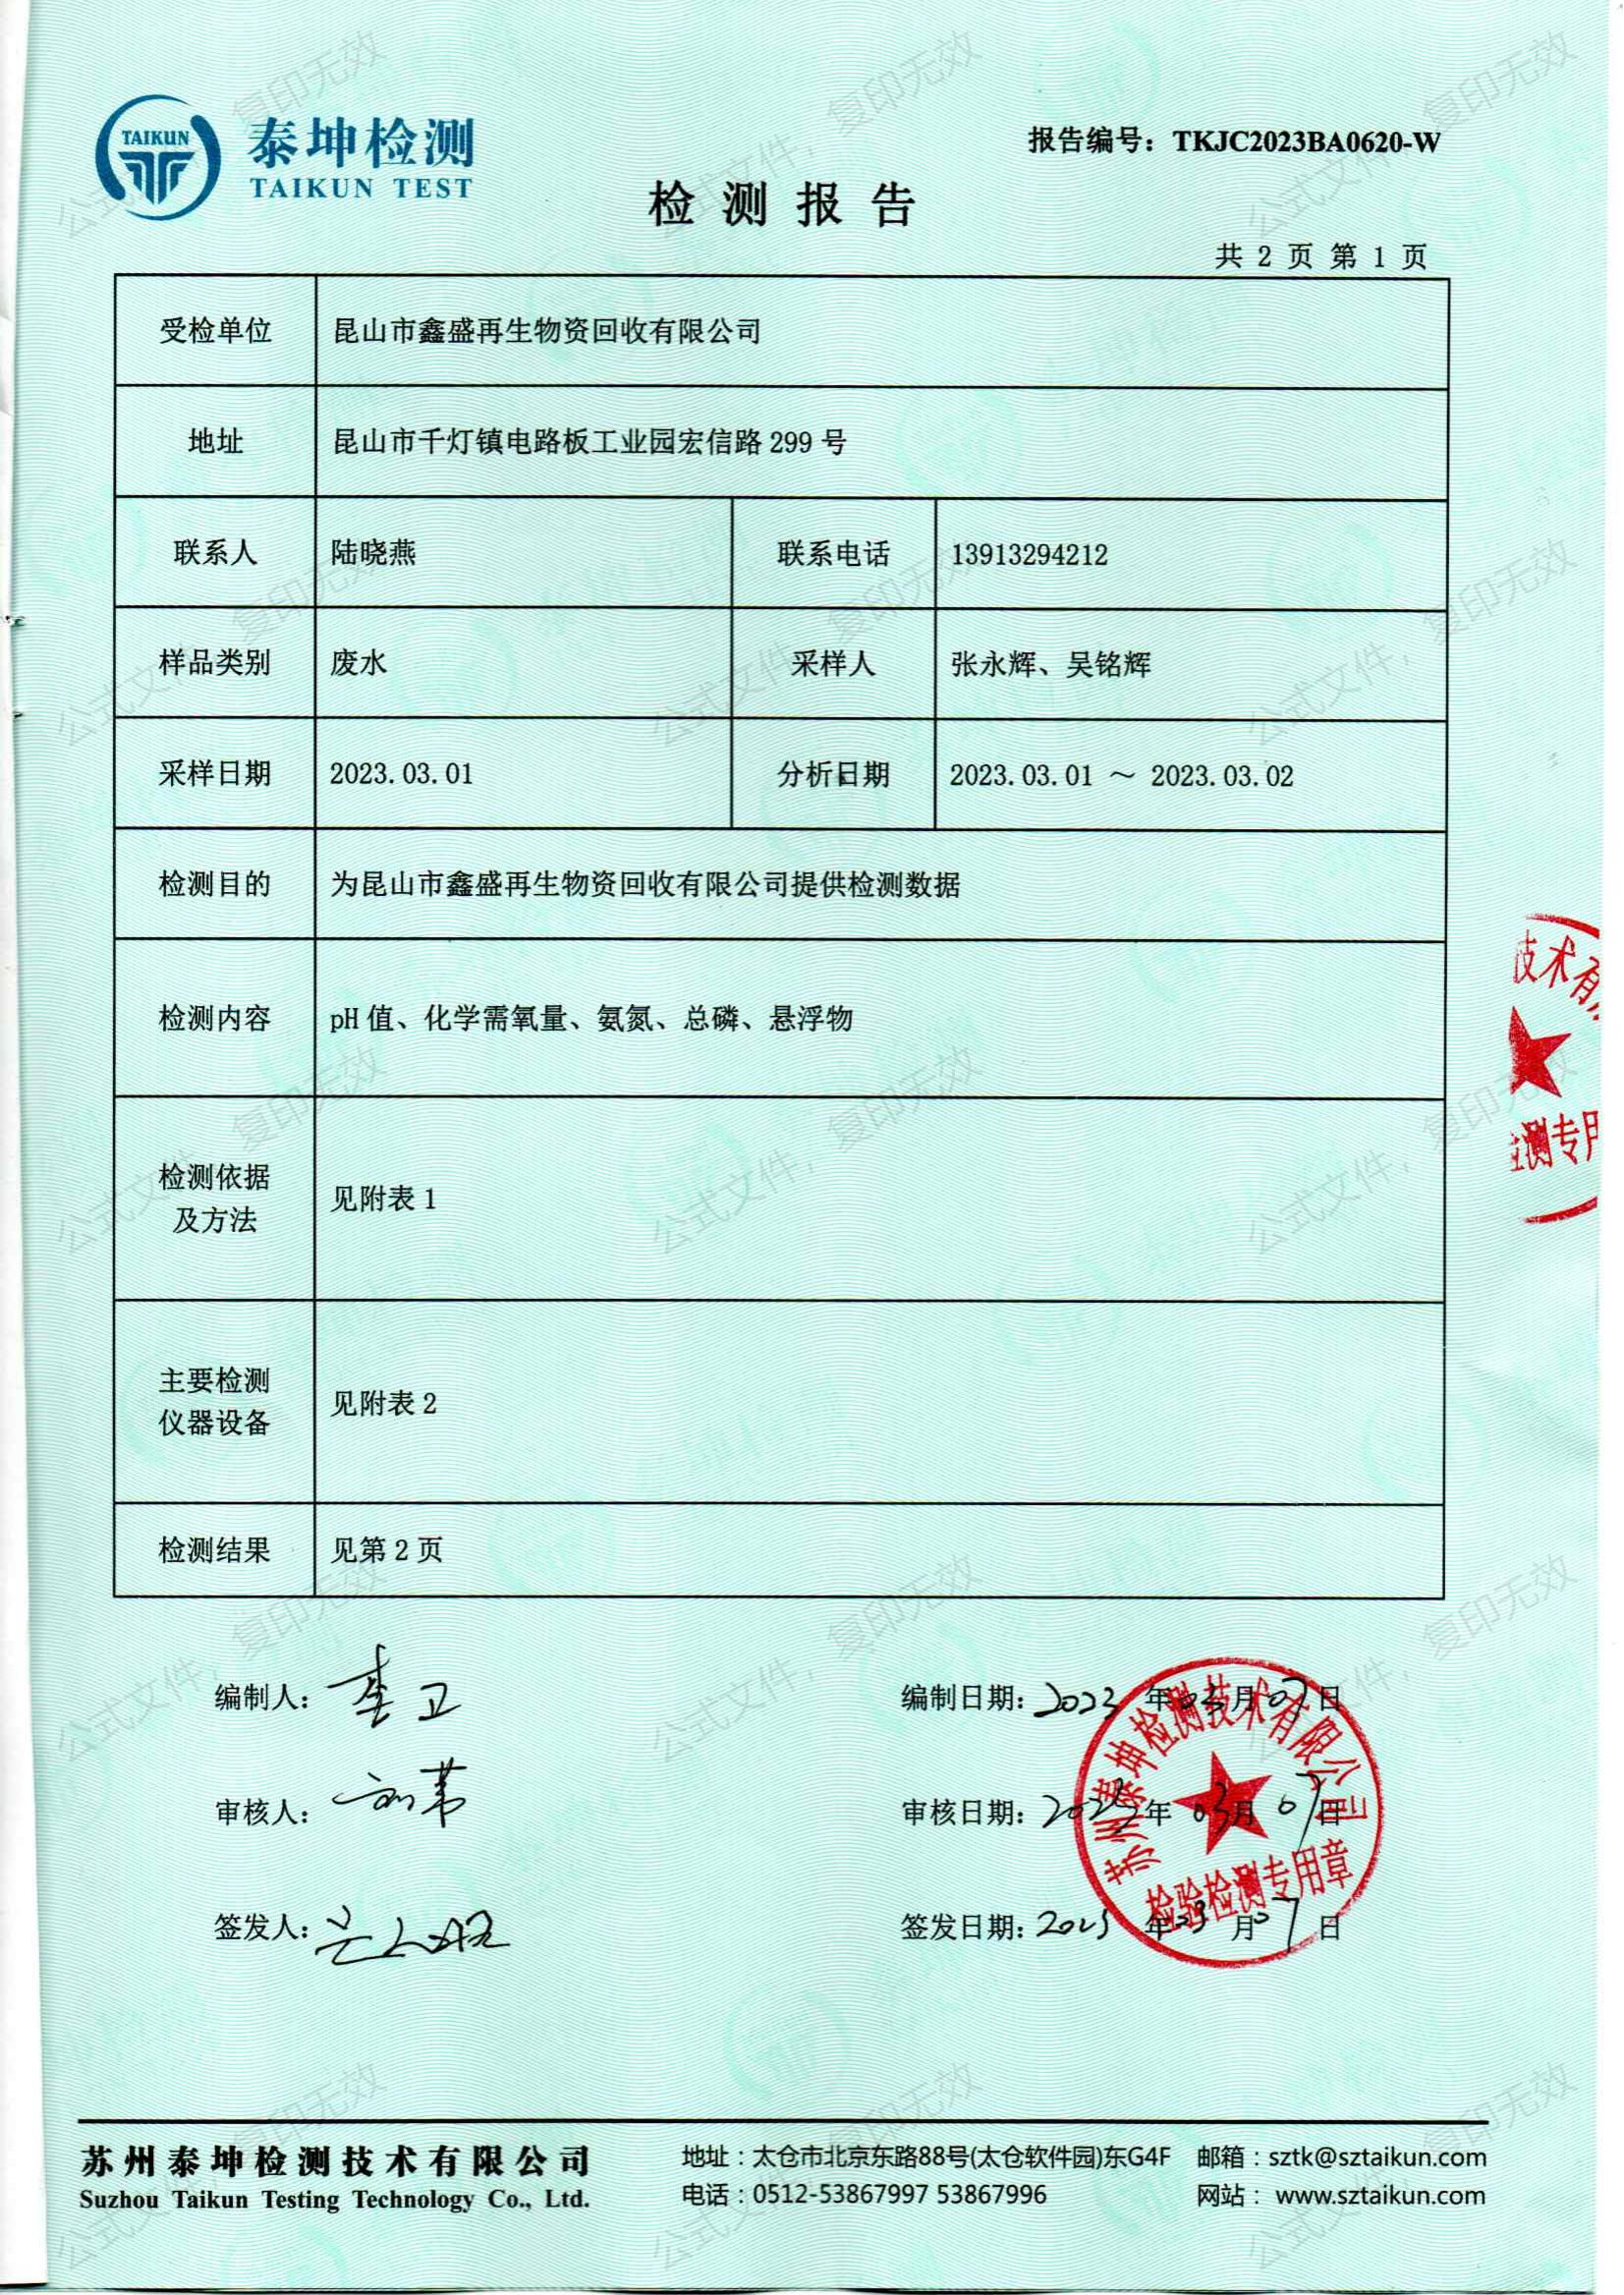 TAIKUN
泰坤检测
TAIKUN TEST
报告编号：TKJC2023BA0620-W
检测报告
共 2 页 第 1 页
受检单位 昆山市鑫盛再生物资回收有限公司
地址 昆山市千灯镇电路板工业园宏信路 299 号
联系人 陆晓燕 联系电话 13913294212
样品类别 废水 采样人 张永辉、吴铭辉
采样日期 2023.03.01 分析日期 2023.03.01 ～ 2023.03.02
检测目的 为昆山市鑫盛再生物资回收有限公司提供检测数据
检测内容 pH 值、化学需氧量、氨氮、总磷、悬浮物
检测依据
及方法
见附表 1
主要检测
仪器设备
见附表 2
检测结果 见第 2 页
技术有
检测专用
编制人： 编制日期：2023 年 03 月 07 日
审核人： 审核日期：2023 年 03 月 07 日
签发人： 签发日期：2023 年 03 月 07 日
苏州泰坤检测技术有限公司
检验检测专用章
苏州泰坤检测技术有限公司
Suzhou Taikun Testing Technology Co., Ltd.
地址：太仓市北京东路88号(太仓软件园)东G4F 邮箱：sztk@sztaikun.com
电话：0512-53867997 53867996 网站：www.sztaikun.com
公式文件，复印无效